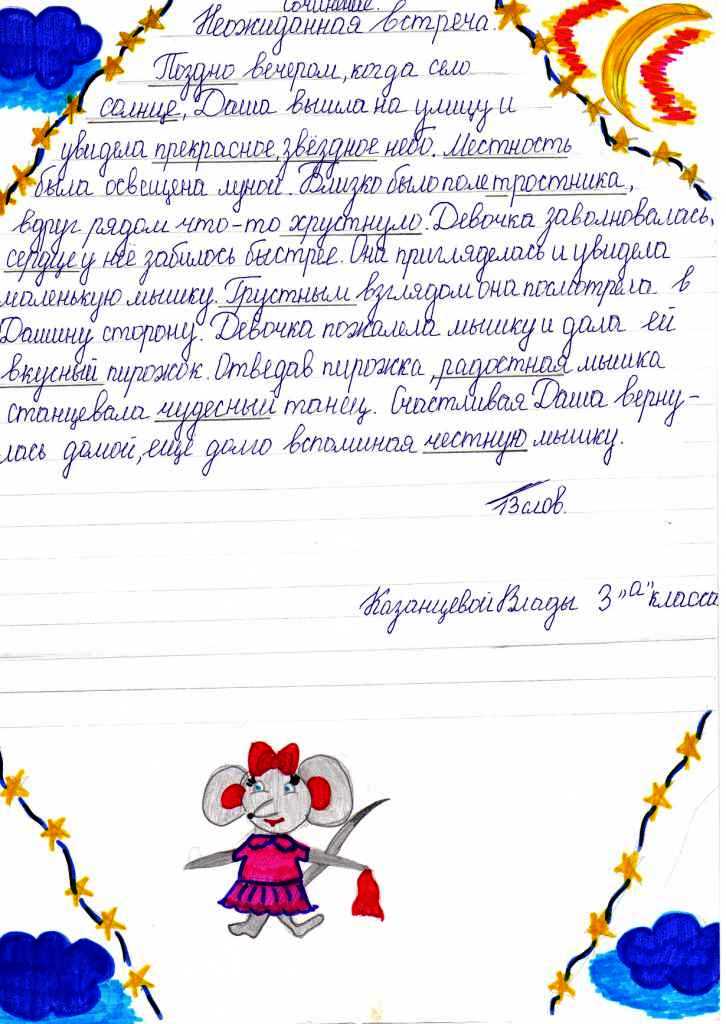 Сочинение.
Неожиданная встреча.
Поздно вечером, когда село
солнце, Даша вышла на улицу и
увидела прекрасное, звёздное небо. Местность
была освещена луной. Близко было поле тростника,
вдруг рядом что-то хрустнуло. Девочка заволновалась,
сердце у неё забилось быстрее. Она пригляделась и увидела
маленькую мышку. Грустным взглядом она посмотрела в
Дашину сторону. Девочка пожалела мышку и дала ей
вкусный пирожок. Отведав пирожка, радостная мышка
станцевала чудесный танец. Счастливая Даша верну-
лась домой, ещё долго вспоминая честную мышку.
13 слов.
Казанцевой Влады 3 "а" класса